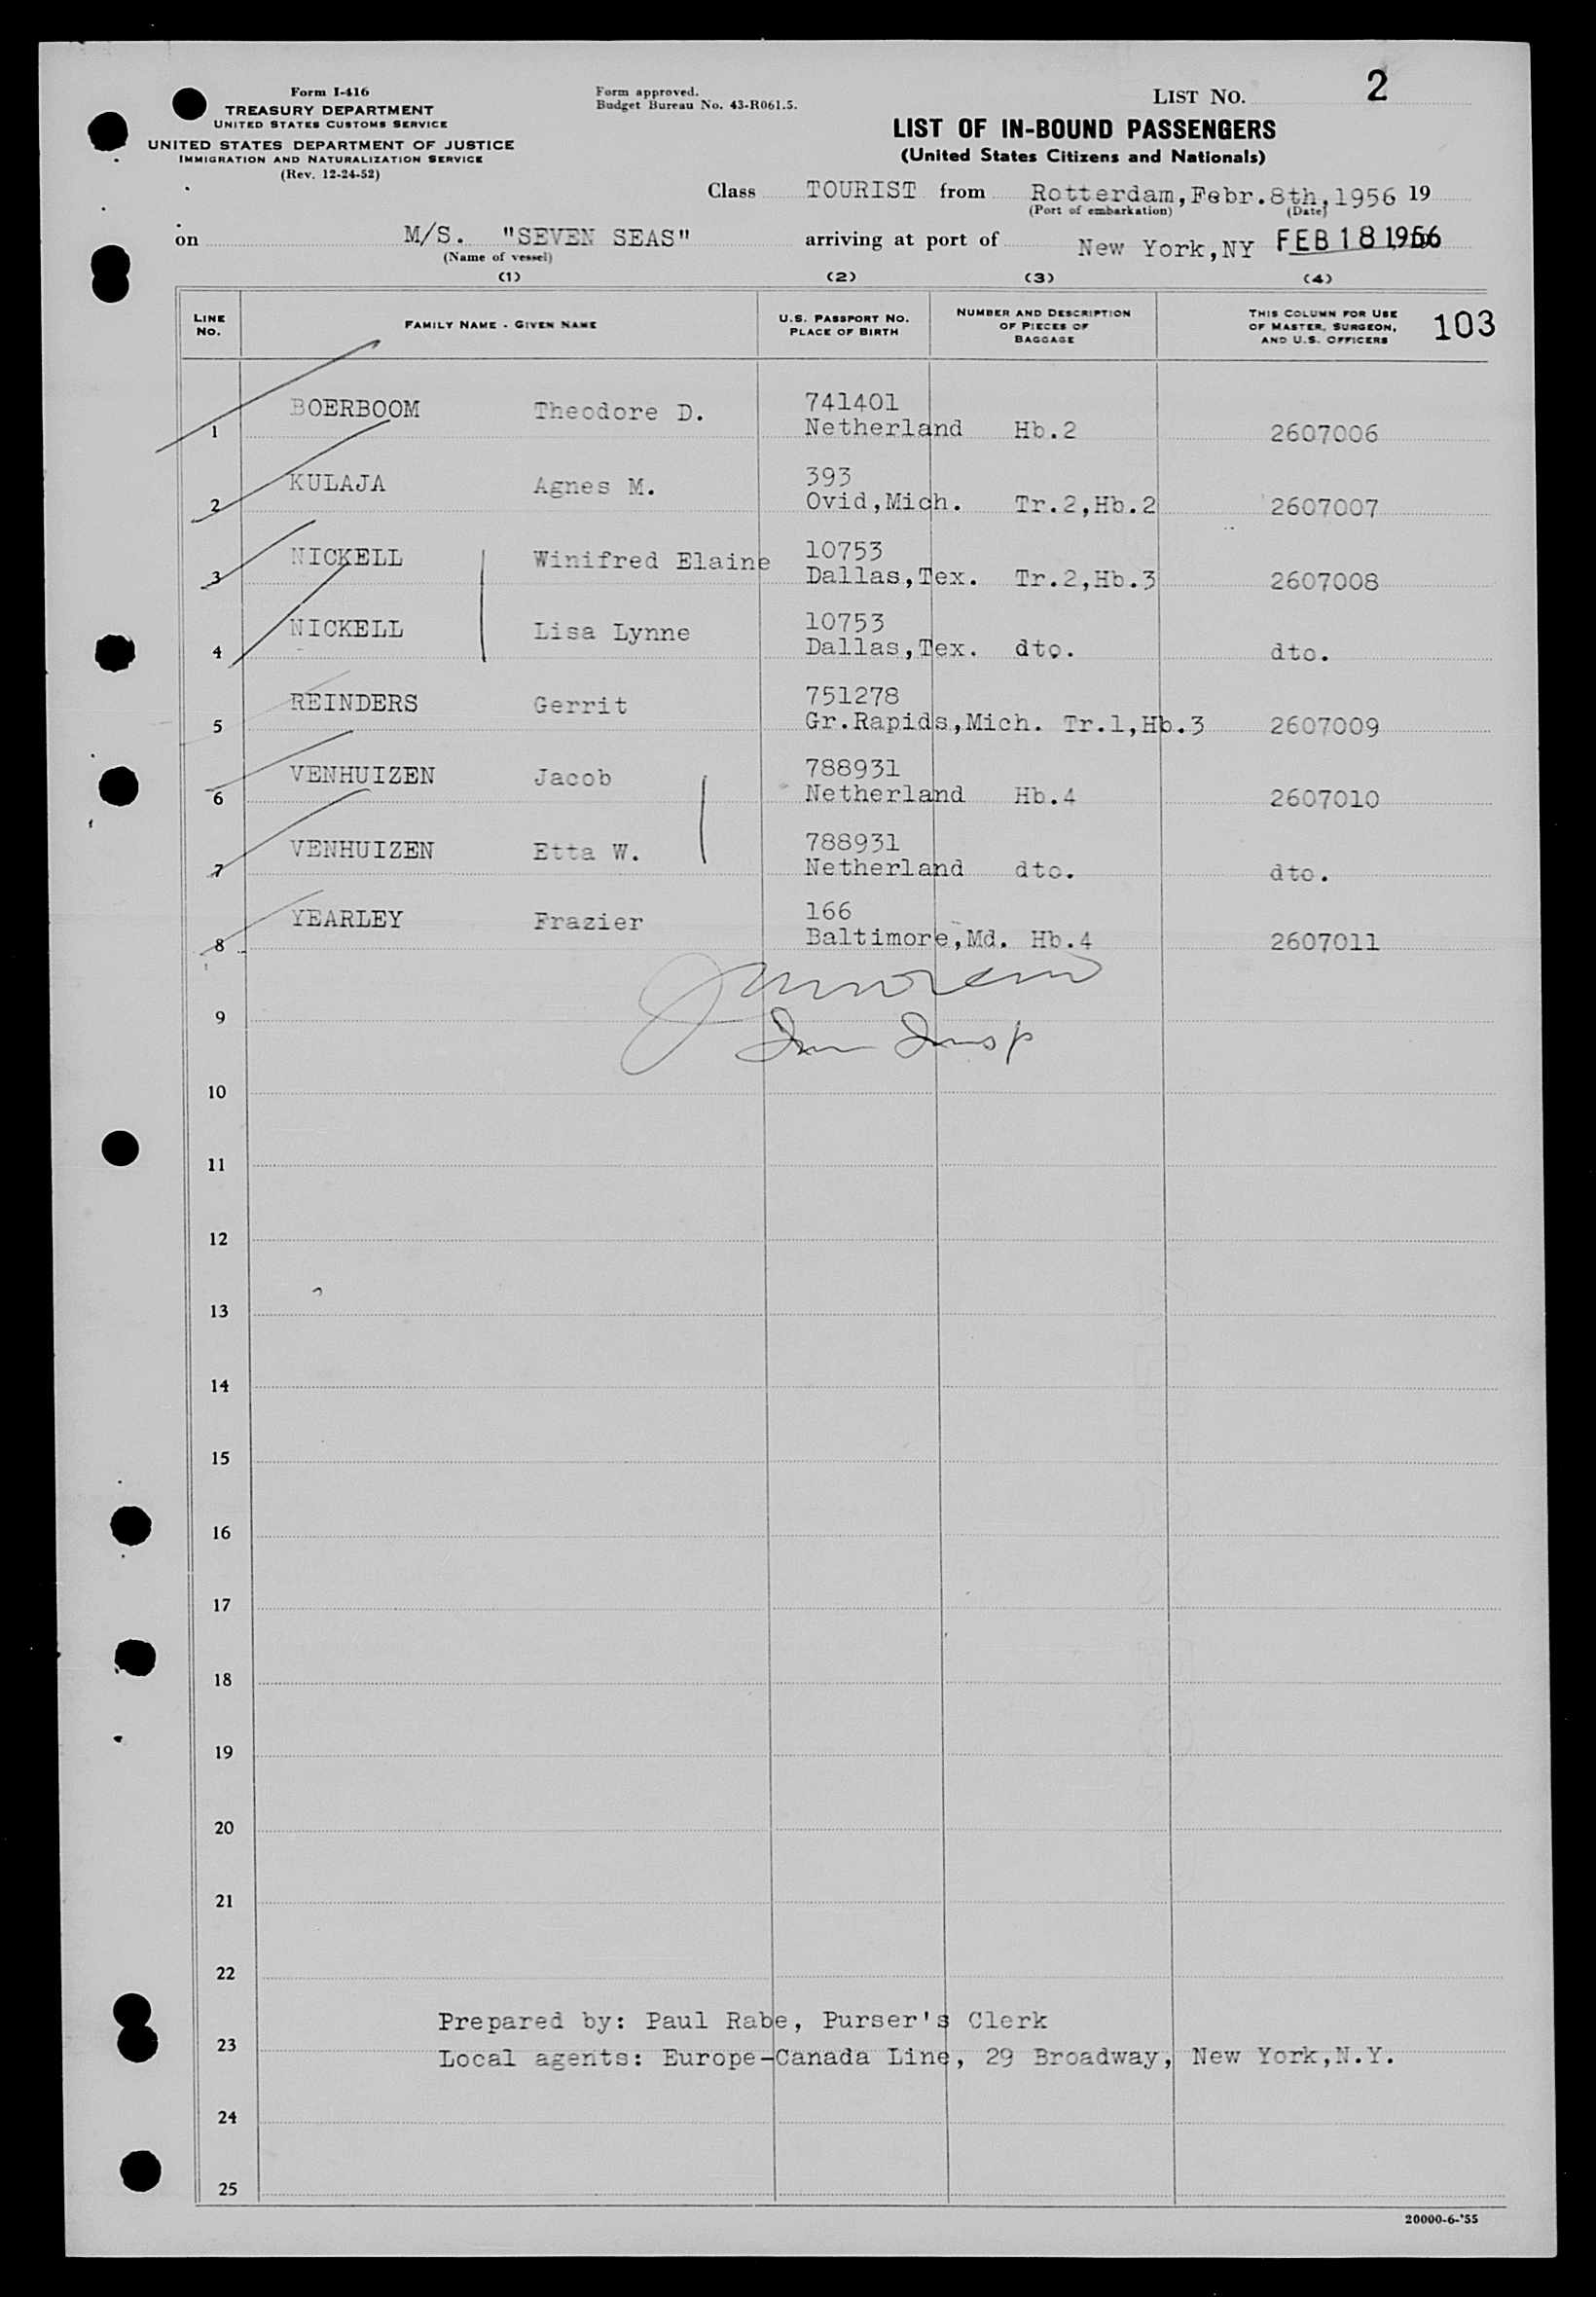 Form I-416
TREASURY DEPARTMENT
UNITED STATES CUSTOMS SERVICE
UNITED STATES DEPARTMENT OF JUSTICE
IMMIGRATION AND NATURALIZATION SERVICE
(Rev. 12-24-52)
Form approved.
Budget Bureau No. 43-R061.5.
LIST NO. 2
LIST OF IN-BOUND PASSENGERS
(United States Citizens and Nationals)
Class TOURIST from Rotterdam,Febr.8th,1956 19
(Port of embarkation) (Date)
on M/S. "SEVEN SEAS" arriving at port of New York,NY FEB 18 1956
(Name of vessel)
(1) (2) (3) (4)
LINE NO. FAMILY NAME - GIVEN NAME U.S. PASSPORT NO. PLACE OF BIRTH NUMBER AND DESCRIPTION OF PIECES OF BAGGAGE THIS COLUMN FOR USE OF MASTER, SURGEON, AND U.S. OFFICERS 103
1 BOERBOOM Theodore D. 741401
Netherland Hb.2 2607006
2 KULAJA Agnes M. 393
Ovid,Mich. Tr.2,Hb.2 2607007
3 NICKELL Winifred Elaine 10753
Dallas,Tex. Tr.2,Hb.3 2607008
4 NICKELL Lisa Lynne 10753
Dallas,Tex. dto. dto.
5 REINDERS Gerrit 751278
Gr.Rapids,Mich. Tr.1,Hb.3 2607009
6 VENHUIZEN Jacob 788931
Netherland Hb.4 2607010
7 VENHUIZEN Etta W. 788931
Netherland dto. dto.
8 YEARLEY Frazier 166
Baltimore,Md. Hb.4 2607011
9
Imm Insp
10
11
12
13
14
15
16
17
18
19
20
21
22
Prepared by: Paul Rabe, Purser's Clerk
23
Local agents: Europe-Canada Line, 29 Broadway, New York,N.Y.
24
25
20000-6-'55